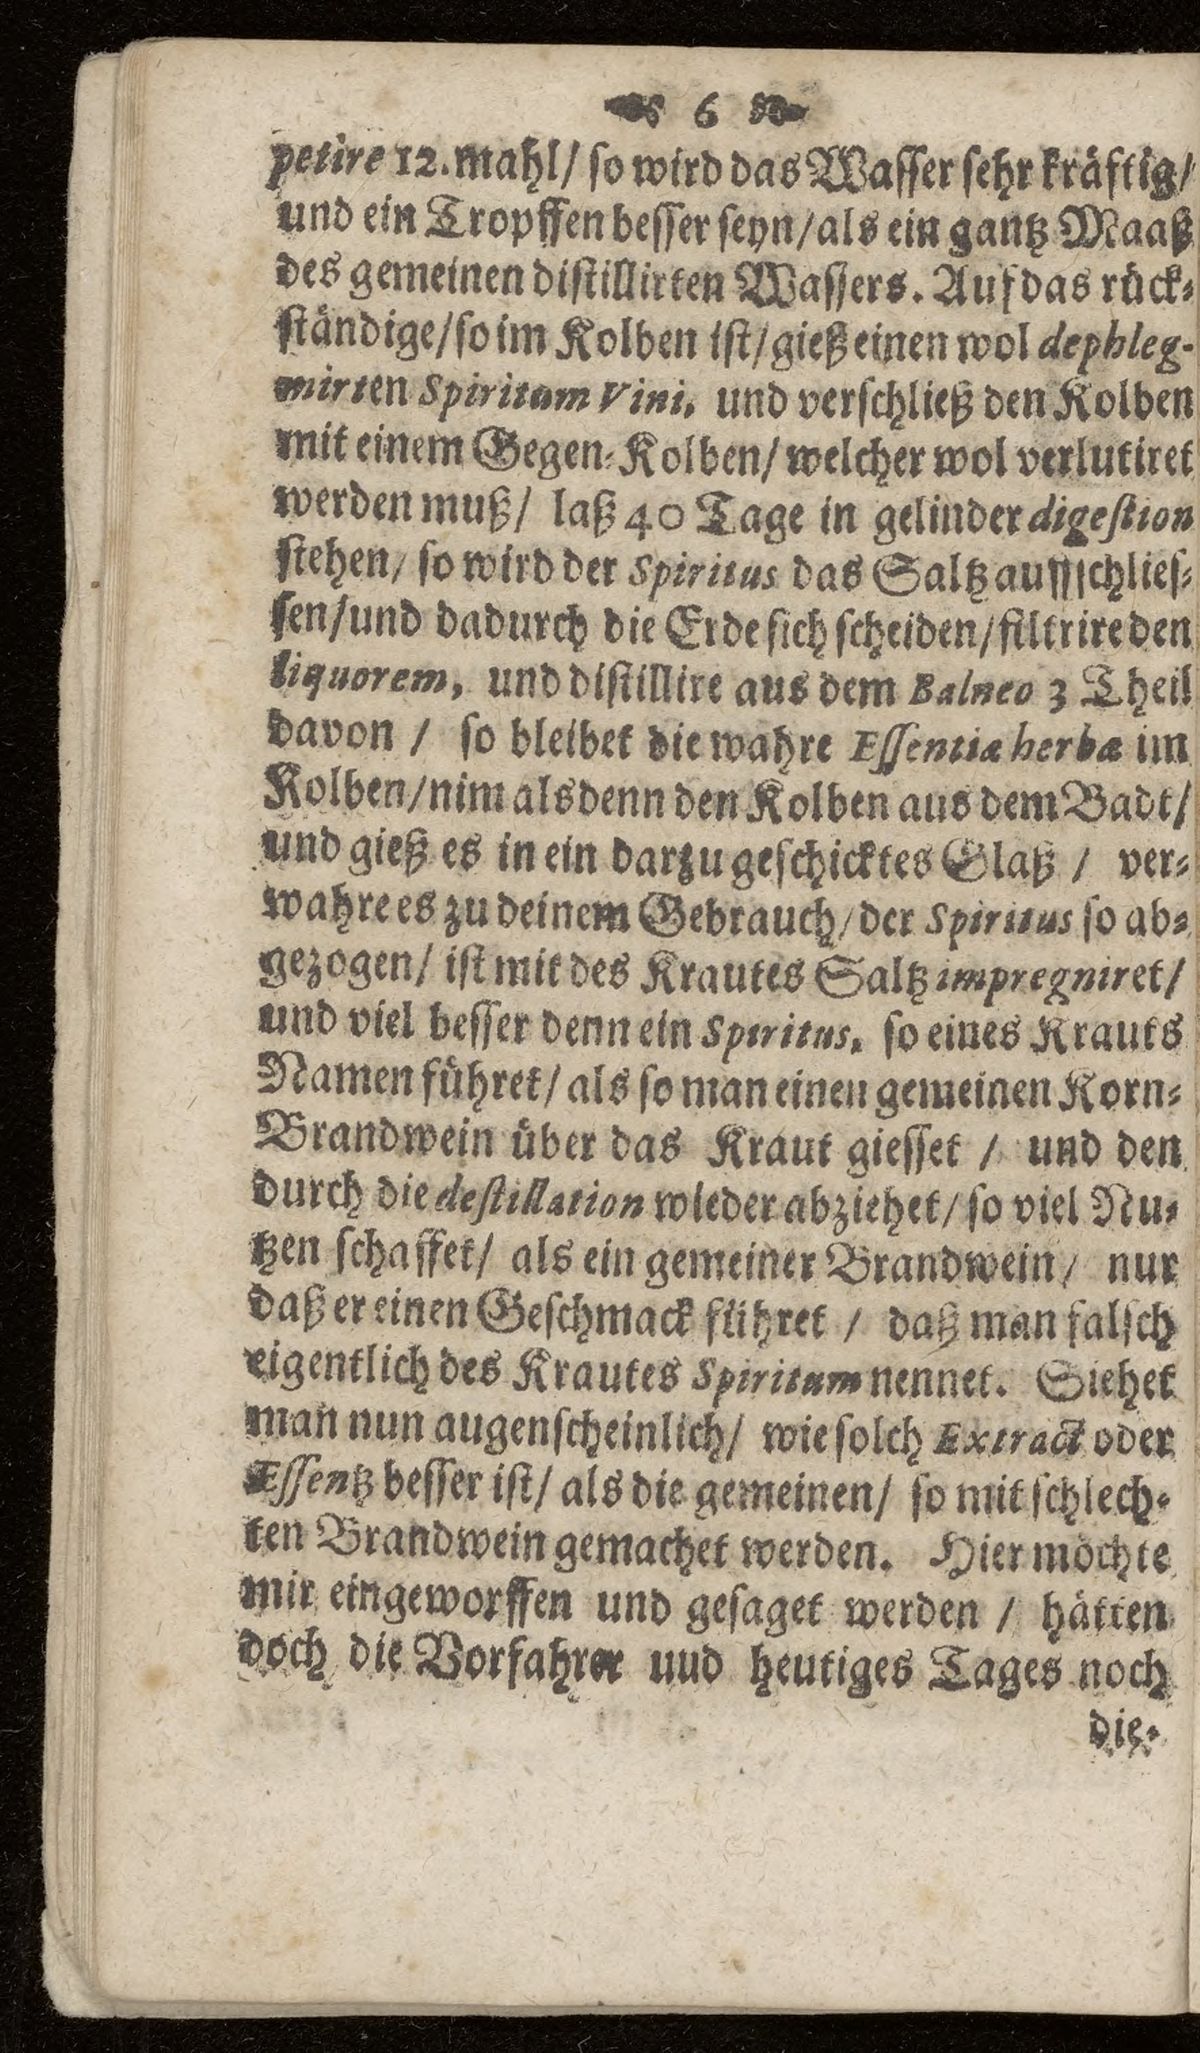 6
petire 12. mahl/ so wird das Wasser sehr kräftig/
und ein Tropffen besser seyn/ als ein gantz Maaß
des gemeinen distillirten Wassers. Auf das rück-
ständige/ so im Kolben ist/ gieß einen wol dephleg-
mirten Spiritum Vini, und verschließ den Kolben
mit einem Gegen-Kolben/ welcher wol verlutiret
werden muß/ laß 40 Tage in gelinder digestion
stehen/ so wird der Spiritus das Saltz auffschlies-
sen/ und dadurch die Erde sich scheiden/ filtrire den
liquorem, und distillire aus dem Balneo 3 Theil
davon / so bleibet die wahre Essentiæ herbæ im
Kolben/ nim alsdenn den Kolben aus dem Badt/
und gieß es in ein darzu geschicktes Glaß / ver-
wahre es zu deinem Gebrauch/ der Spiritus so ab-
gezogen/ ist mit des Krautes Saltz impregniret/
und viel besser denn ein Spiritus, so eines Krauts
Namen führet/ als so man einen gemeinen Korn-
Brandwein über das Kraut giesset / und den
durch die destillation wieder abziehet/ so viel Nu-
tzen schaffet/ als ein gemeiner Brandwein/ nur
daß er einen Geschmack führet / daß man falsch
eigentlich des Krautes Spiritum nennet. Siehet
man nun augenscheinlich/ wie solch Extract oder
Essentz besser ist/ als die gemeinen/ so mit schlech-
ten Brandwein gemachet werden. Hier möchte
mir eingeworffen und gesaget werden / hätten
doch die Vorfahrer uud heutiges Tages noch
die-